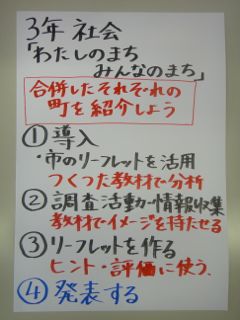 3年 社会
「わたしのまち
みんなのまち」
合併したそれぞれの
町を紹介しよう
①導入
・市のリーフレットを活用
つくった教材で分析
②調査活動・情報収集
教材でイメージを持たせる
③リーフレットを作る
ヒント・評価に使う。
④発表する